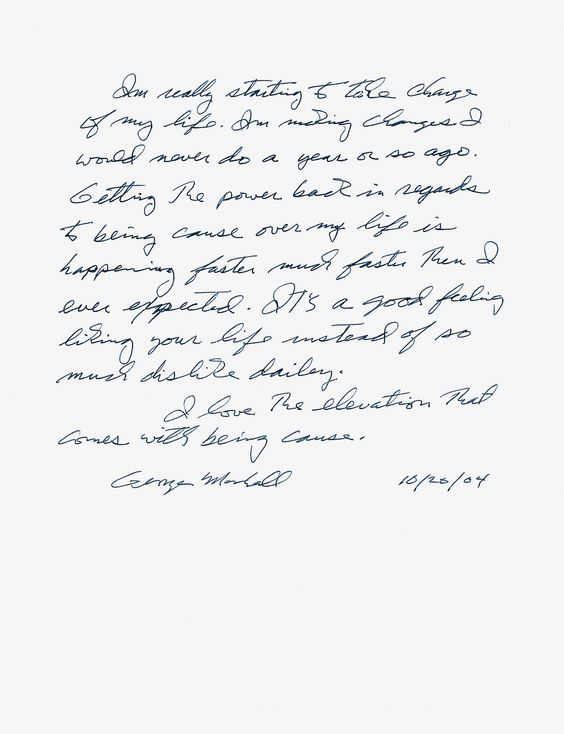 Im really starting to take charge
of my life. Im making changes I
would never do a year or so ago.
Getting the power back in regards
to being cause over my life is
happening faster much faster then I
ever expected. It's a good feeling
liking your life instead of so
much dislike dailey.
I love the elevation that
comes with being cause.
George Marhall 10/20/04